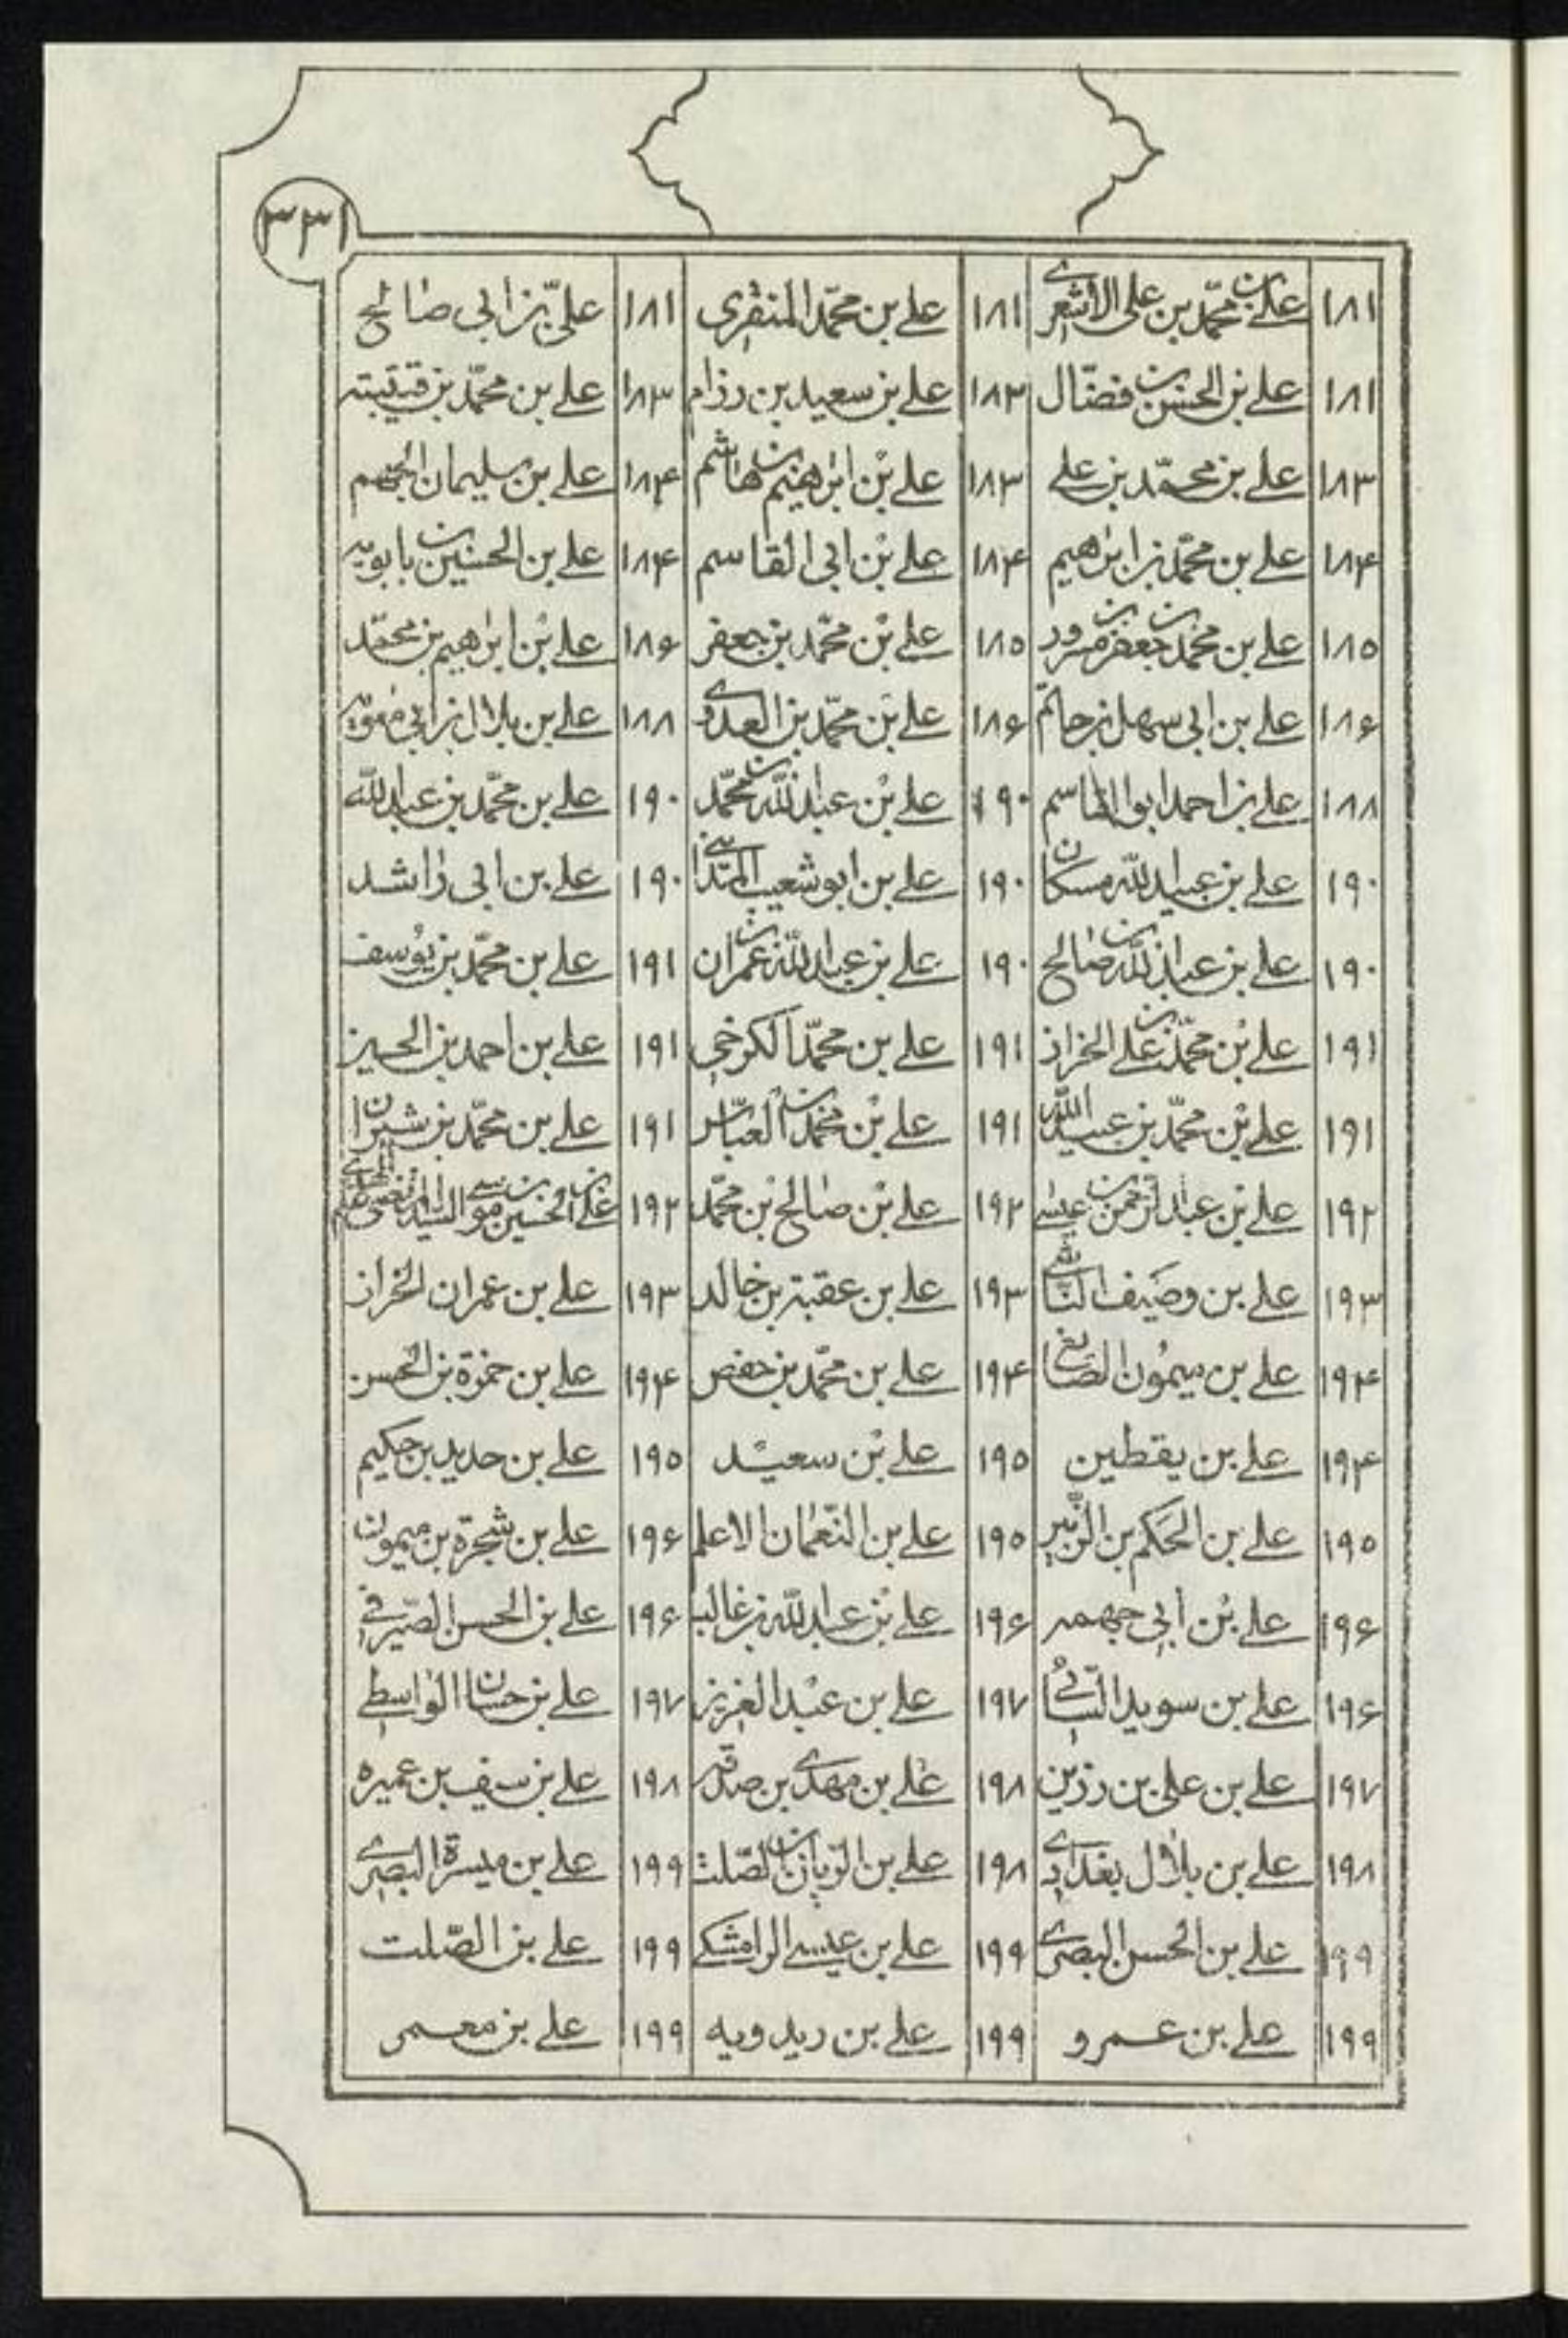 ۳۳۱
۱۸۱ علی بن محمد بن علی الاشعری ۱۸۱ علی بن محمد المنقری ۱۸۱ علی بن ابی صالح
۱۸۱ علی بن الحسن بن فضال ۱۸۳ علی بن سعید بن رزام ۱۸۳ علی بن محمد بن قتیبته
۱۸۳ علی بن محمد بن علی ۱۸۳ علی بن ابرهیم بن هاشم ۱۸۴ علی بن سلیمان الجهم
۱۸۴ علی بن محمد بن ابرهیم ۱۸۴ علی بن ابی القاسم ۱۸۴ علی بن الحسین بن بابویه
۱۸۵ علی بن محمد بن جعفر بن مسرور ۱۸۵ علی بن محمد بن جعفر ۱۸۶ علی بن ابرهیم بن محمد
۱۸۶ علی بن ابی سهل بن حاتم ۱۸۶ علی بن محمد بن العدوی ۱۸۸ علی بن بلال بن ابی معویه
۱۸۸ علی بن احمد ابو القاسم ۱۹۰ علی بن عبدالله بن محمد ۱۹۰ علی بن محمد بن عبدالله
۱۹۰ علی بن عبیدالله مسکان ۱۹۰ علی بن ابو شعیب المدائنی ۱۹۰ علی بن ابی راشد
۱۹۰ علی بن عبدالله بن صالح ۱۹۰ علی بن عبدالله بن عمران ۱۹۱ علی بن محمد بن یوسف
۱۹۱ علی بن محمد بن علی الخزاز ۱۹۱ علی بن محمد الکرخی ۱۹۱ علی بن احمد بن الحسین
۱۹۱ علی بن محمد بن عبیدالله ۱۹۱ علی بن محمد بن العباس ۱۹۱ علی بن محمد بن شیران
۱۹۲ علی بن عبدالرحمن بن عیسی ۱۹۲ علی بن صالح بن محمد ۱۹۲ علی بن الحسین بن موسی السید المرتضی علم الهدی
۱۹۳ علی بن وصیف الناشی ۱۹۳ علی بن عقبة بن خالد ۱۹۳ علی بن عمران الخزاز
۱۹۴ علی بن میمون الصایغ ۱۹۴ علی بن محمد بن حفص ۱۹۴ علی بن حمزة بن الحسن
۱۹۴ علی بن یقطین ۱۹۵ علی بن سعید ۱۹۵ علی بن حدید بن حکیم
۱۹۵ علی بن الحکم بن الزبیر ۱۹۵ علی بن النعمان الاعلم ۱۹۶ علی بن شجرة بن میمون
۱۹۶ علی بن ابی جهمه ۱۹۶ علی بن عبدالله بن غالب ۱۹۶ علی بن الحسن الصیرفی
۱۹۶ علی بن سوید السائی ۱۹۷ علی بن عبد العزیز ۱۹۷ علی بن حسان الواسطی
۱۹۷ علی بن علی بن رزین ۱۹۸ علی بن مهدی بن صدقه ۱۹۸ علی بن سیف بن عمیره
۱۹۸ علی بن بلال بغدادی ۱۹۸ علی بن الریان بن الصلت ۱۹۹ علی بن میسرة البصری
۱۹۹ علی بن الحسن البصری ۱۹۹ علی بن عیسی الرامشکی ۱۹۹ علی بن الصلت
۱۹۹ علی بن عمرو ۱۹۹ علی بن ریدویه ۱۹۹ علی بن معمر